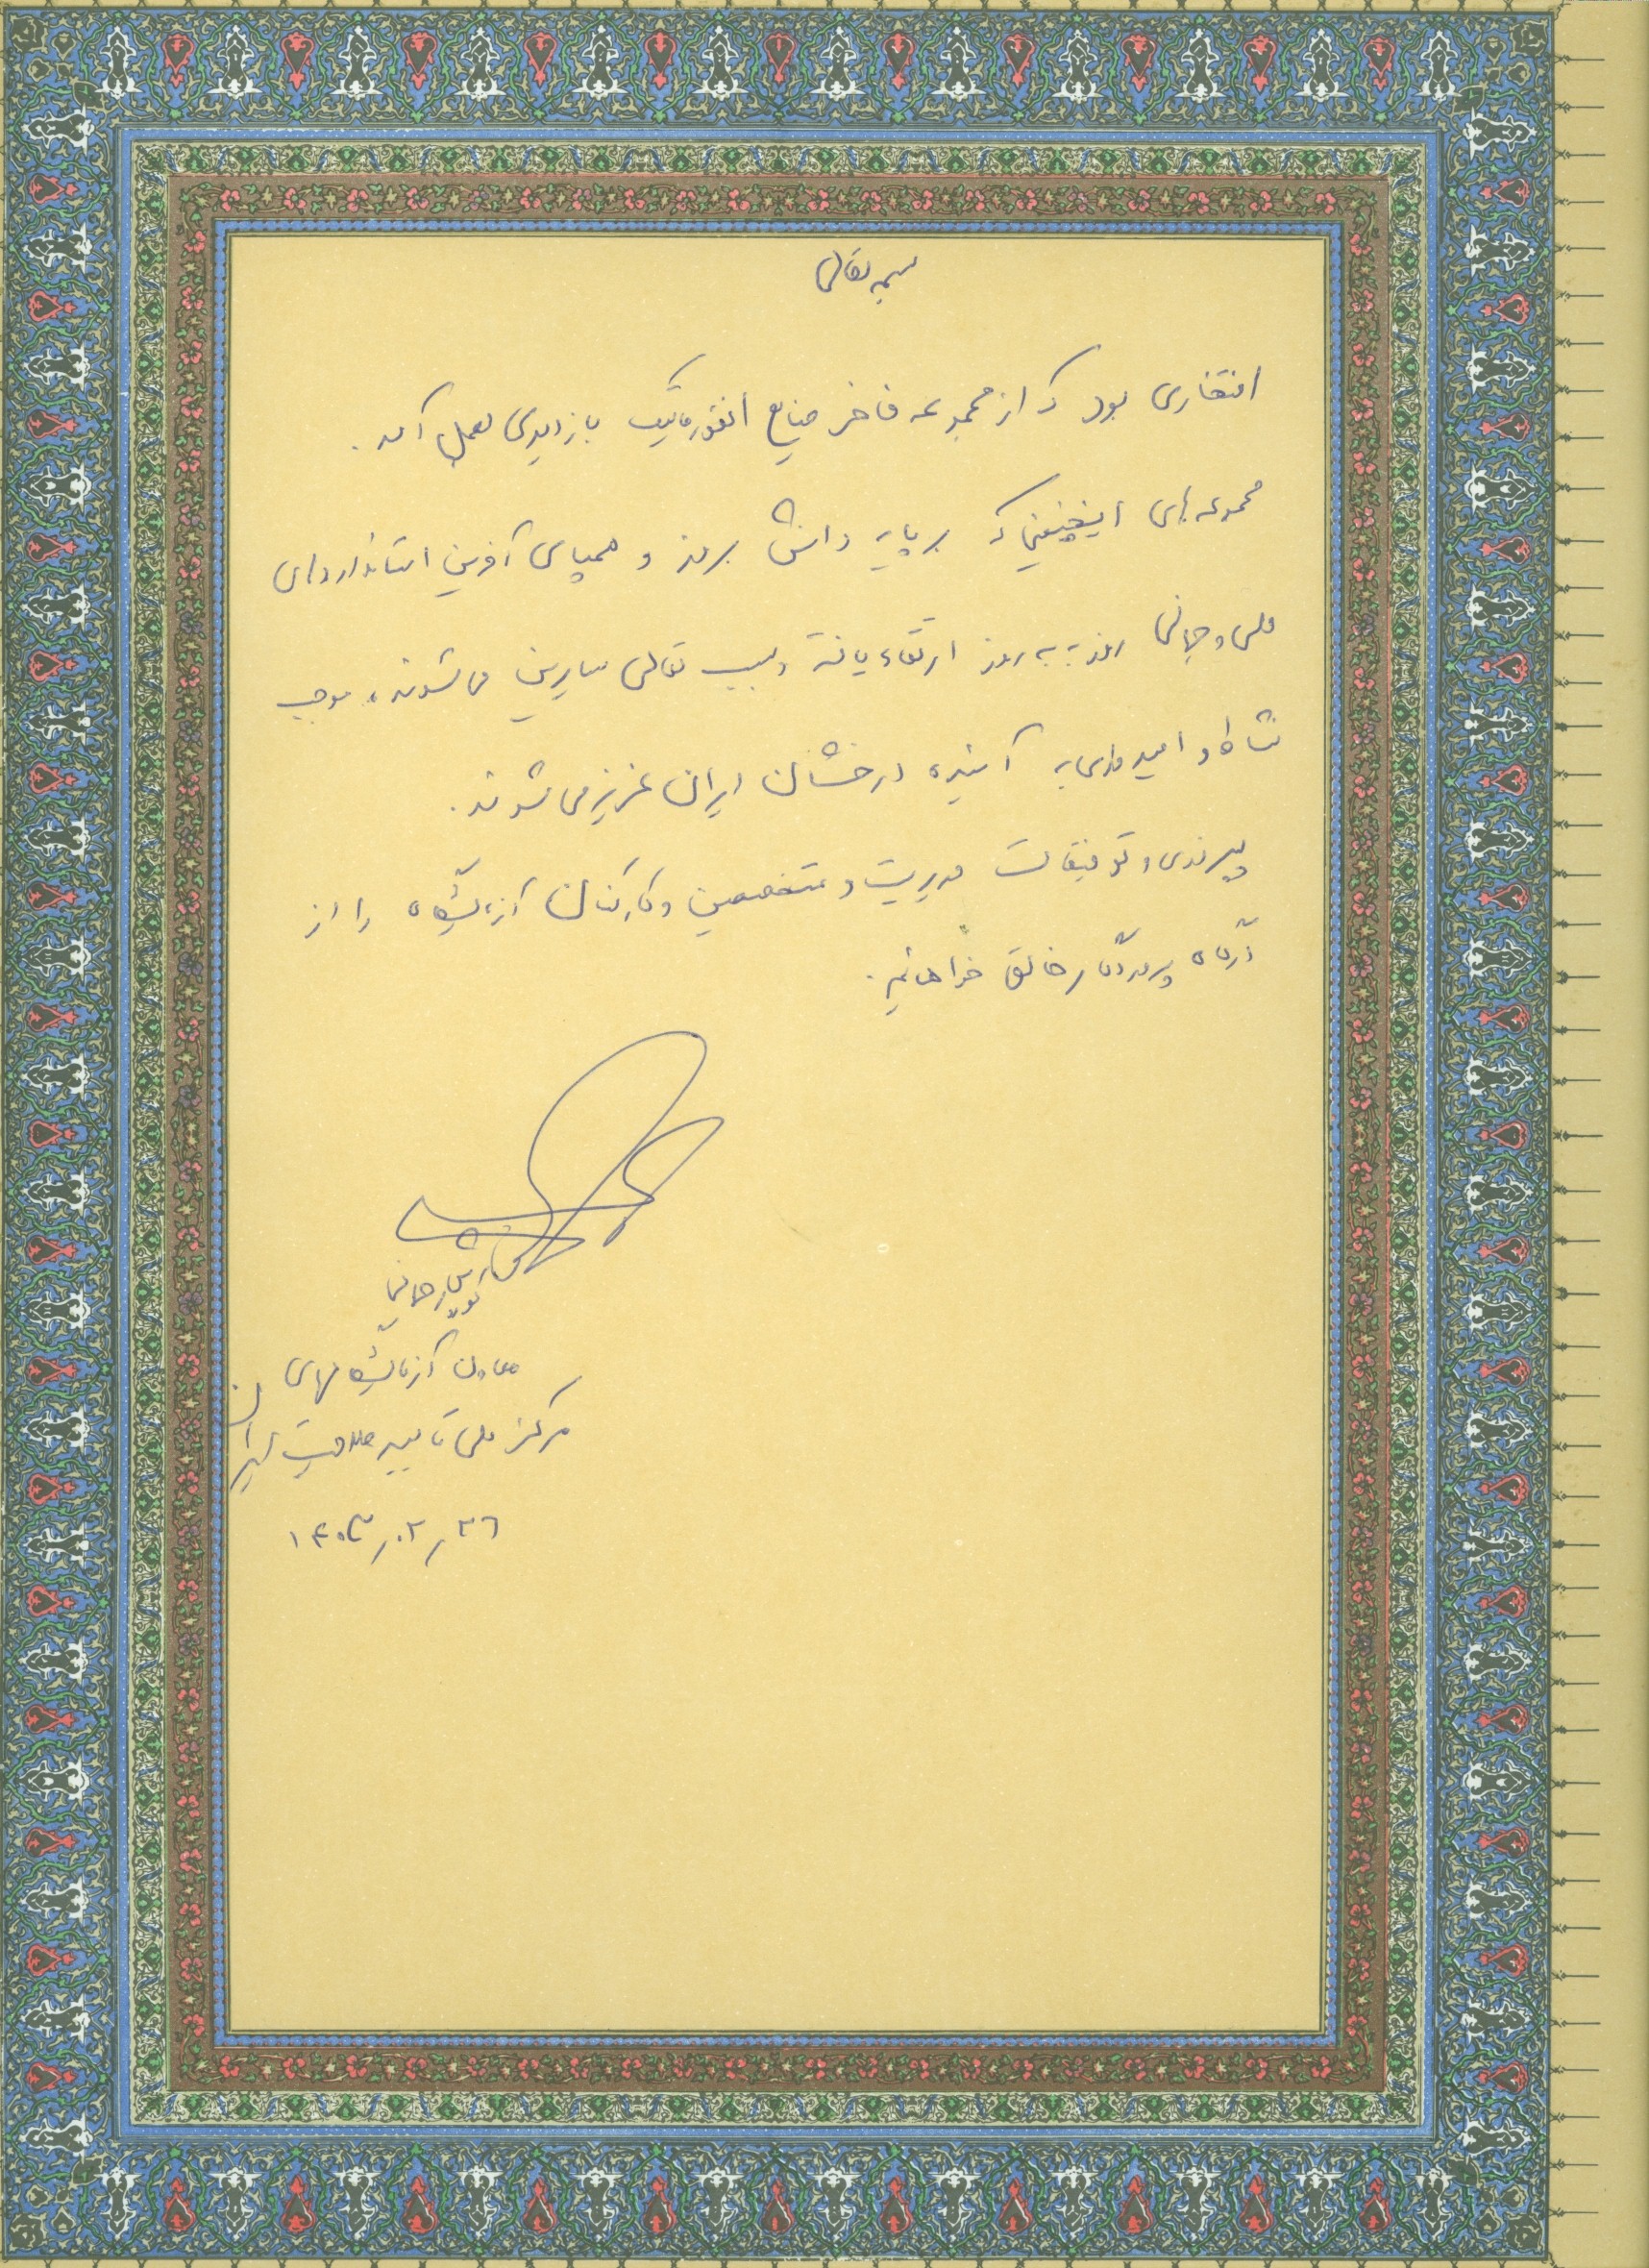 بسمه تعالی
افتخاری بود که از مجموعه فاخر صنایع انفورماتیک بازدیدی بعمل آمد.
مجموعه‌های اینچنینی که بر پایه دانش بروز و همپای آخرین استانداردهای
ملی و جهانی روز به روز ارتقاء یافته و سبب تعالی سایرین می‌شوند، موجب
نشاط و امیدواری به آینده درخشان ایران عزیز می‌شوند.
پیروزی و توفیقات مدیریت و متخصصین و کارکنان آزمایشگاه را از
درگاه پروردگار خالق خواهانیم.
معاون آزمایشگاههای
مرکز ملی تایید صلاحیت ایران
۱۴۰۳/۰۲/۲۶